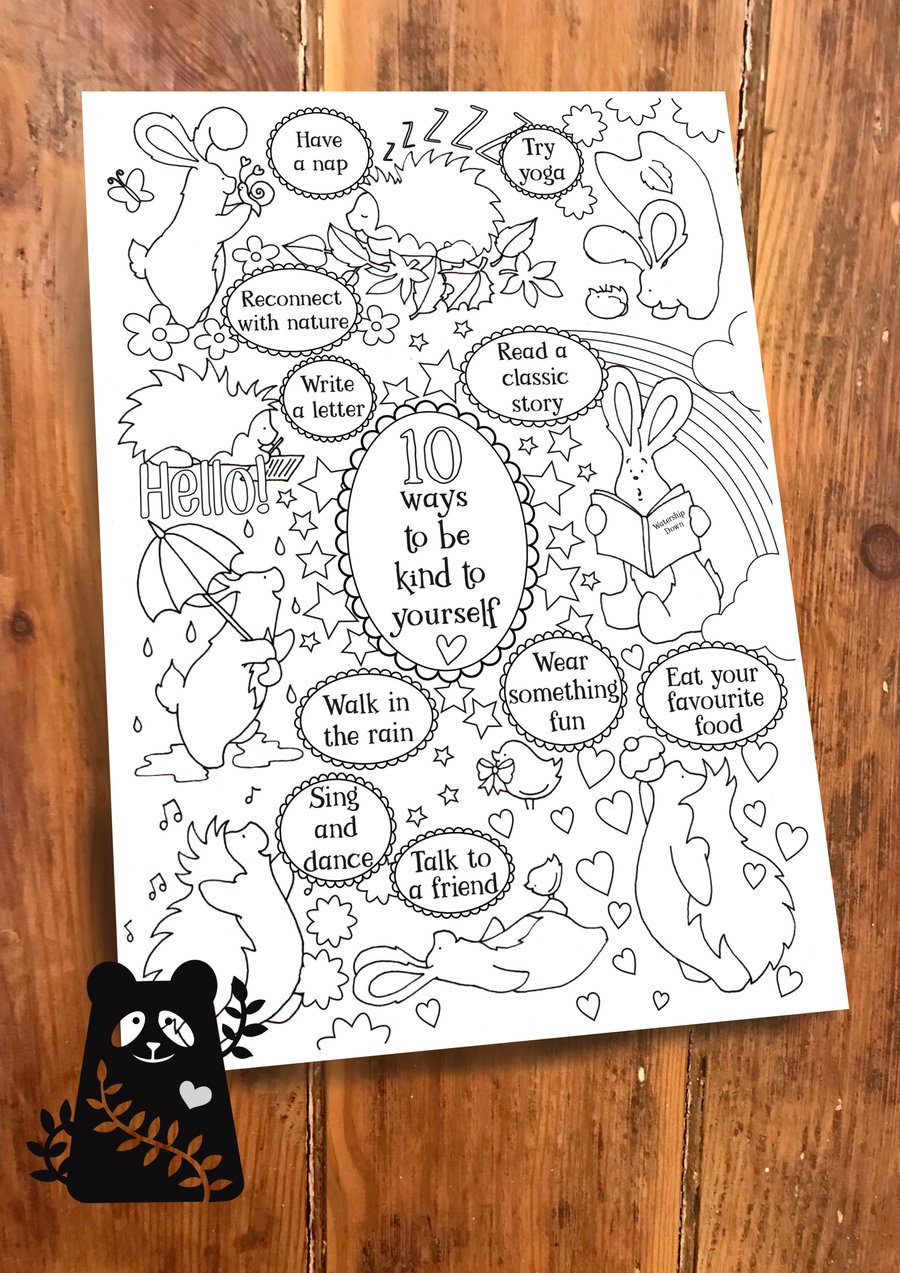 Have
a nap
zzzZZZ
Try
yoga
Reconnect
with nature
Write
a letter
Read a
classic
story
Hello!
10
ways
to be
kind to
yourself
Watership
Down
Walk in
the rain
Wear
something
fun
Eat your
favourite
food
Sing
and
dance
Talk to
a friend
K